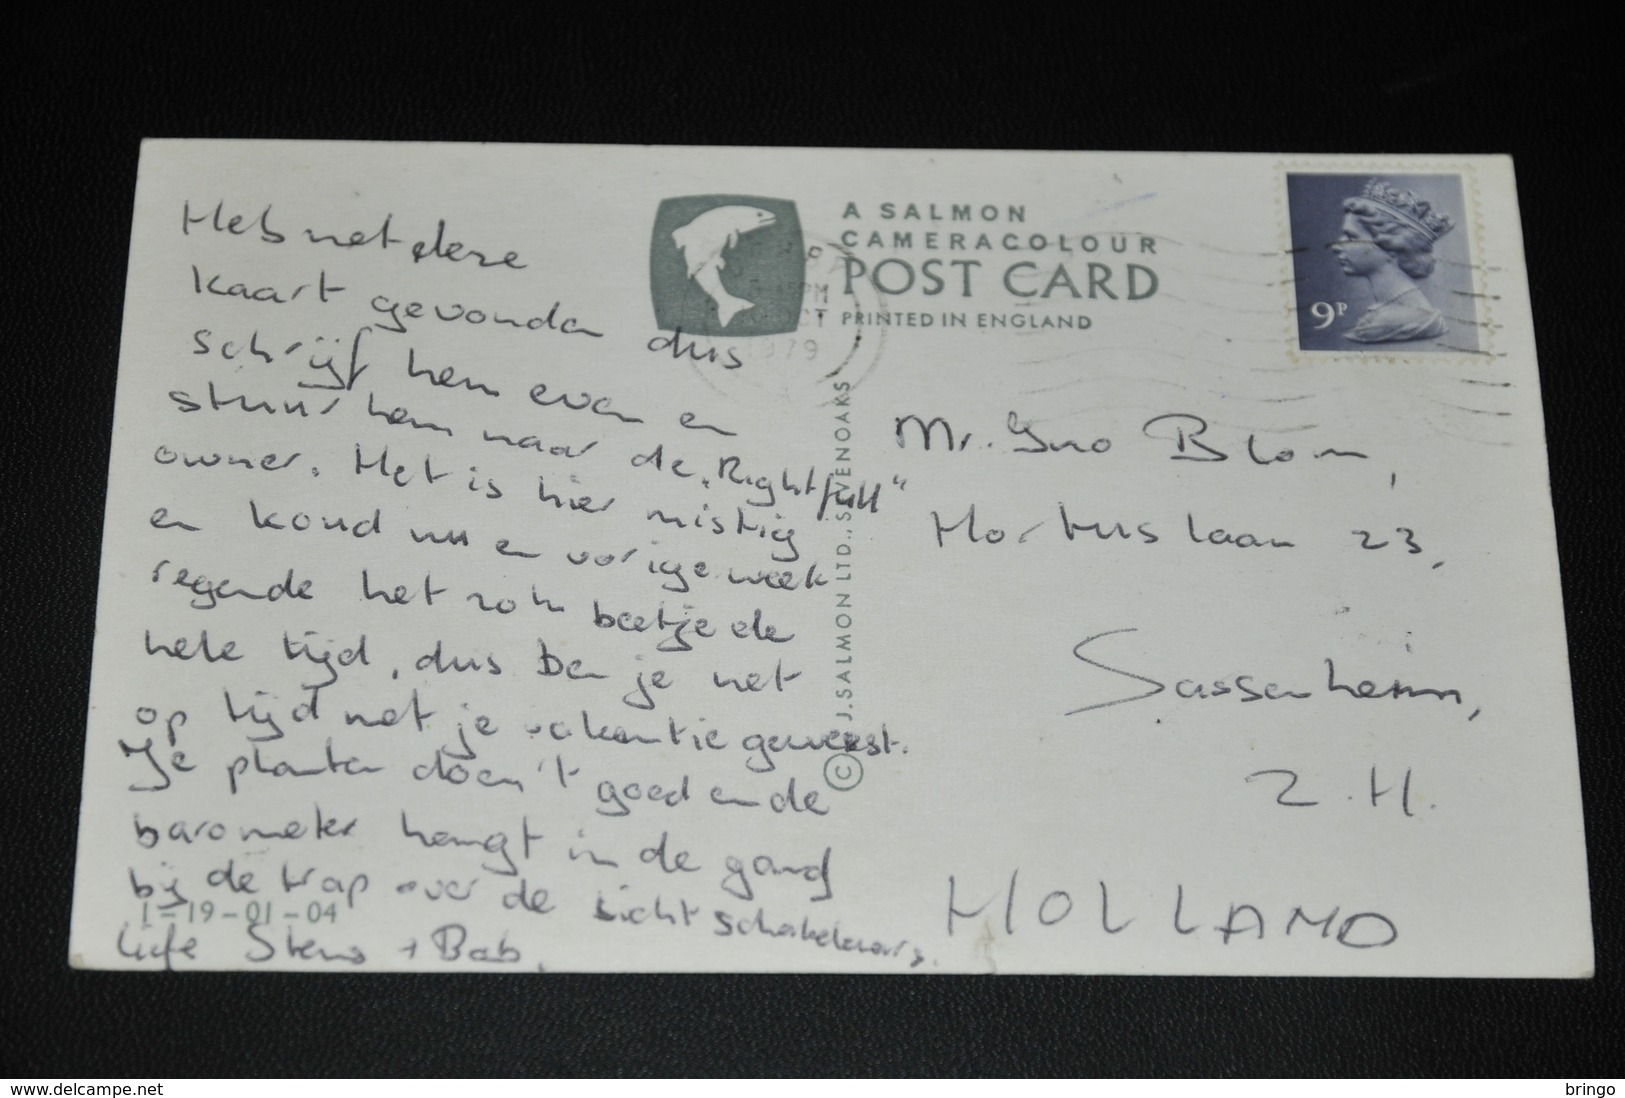 Heb net deze
kaart gevonden dus
schrijf hem even en
stuur hem naar de "Rightfull"
owner. Het is hier mistig
en koud nu en vorige week
regende het zo'n beetje de
hele tijd, dus ben je net
op tijd met je vakantie geweest.
Je planten doen 't goed en de
barometer hangt in de gang
bij de trap over de lichtschakelaars.
Liefs + Bab.
1-19-01-04
A SALMON
CAMERACOLOUR
POST CARD
PRINTED IN ENGLAND
PM
OCT
1979
© J. SALMON LTD., SEVENOAKS
9P
Mr. Blom,
Hortuslaan 23,
Sassenheim,
Z.H.
HOLLAND
www.delcampe.net
bringo